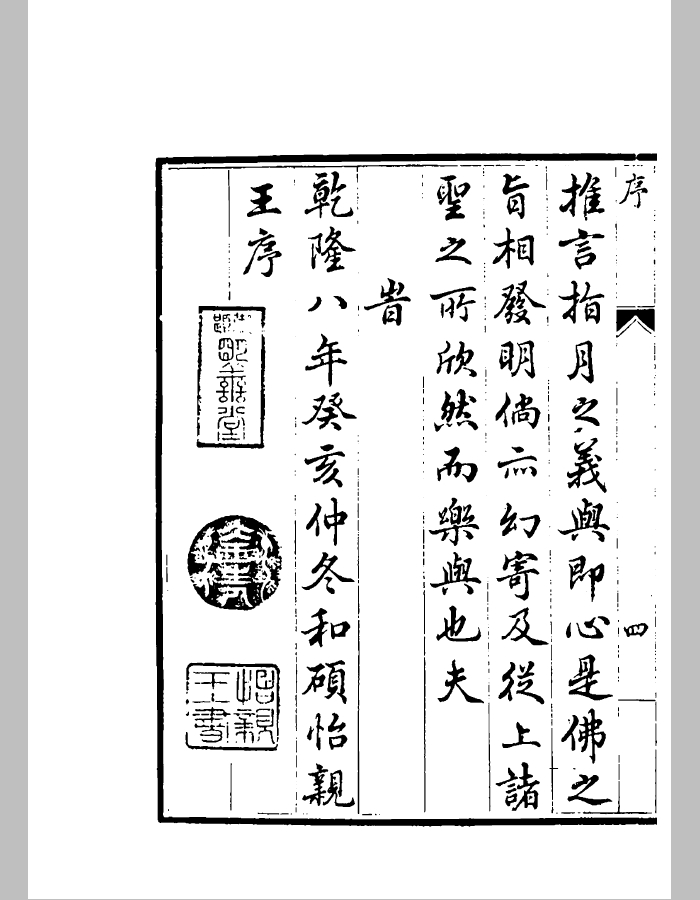 序
四
推言指月之義與即心是佛之
旨相發明倘亦幻寄及從上諸
聖之所欣然而樂與也夫
旹
乾隆八年癸亥仲冬和碩怡親
王序
明善堂
怡親
王書